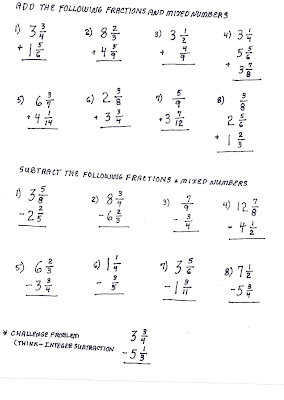 ADD THE FOLLOWING FRACTIONS AND MIXED NUMBERS
1) 3 3/4 + 1 5/6
2) 8 2/3 + 4 5/9
3) 3 1/2 + 4/9
4) 3 1/4 5 5/6 + 3 7/8
5) 6 3/7 + 4 1/14
6) 2 3/8 + 3 3/4
7) 5/9 + 3 7/12
8) 3/8 2 5/6 + 1 2/3
SUBTRACT THE FOLLOWING FRACTIONS + MIXED NUMBERS
1) 3 5/8 - 2 2/5
2) 8 3/4 - 6 2/3
3) 7/9 - 3/4
4) 12 7/8 - 4 1/2
5) 6 2/3 - 3 3/4
6) 1 1/4 - 3/5
7) 3 5/6 - 1 9/11
8) 7 1/2 - 5 3/4
* CHALLENGE PROBLEM 3 3/4
(THINK - INTEGER SUBTRACTION - 5 1/3